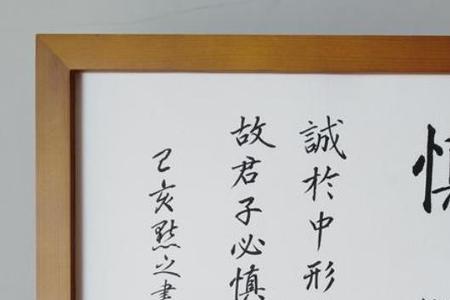 慎
誠於中形
故君子必慎
己亥㸃之書